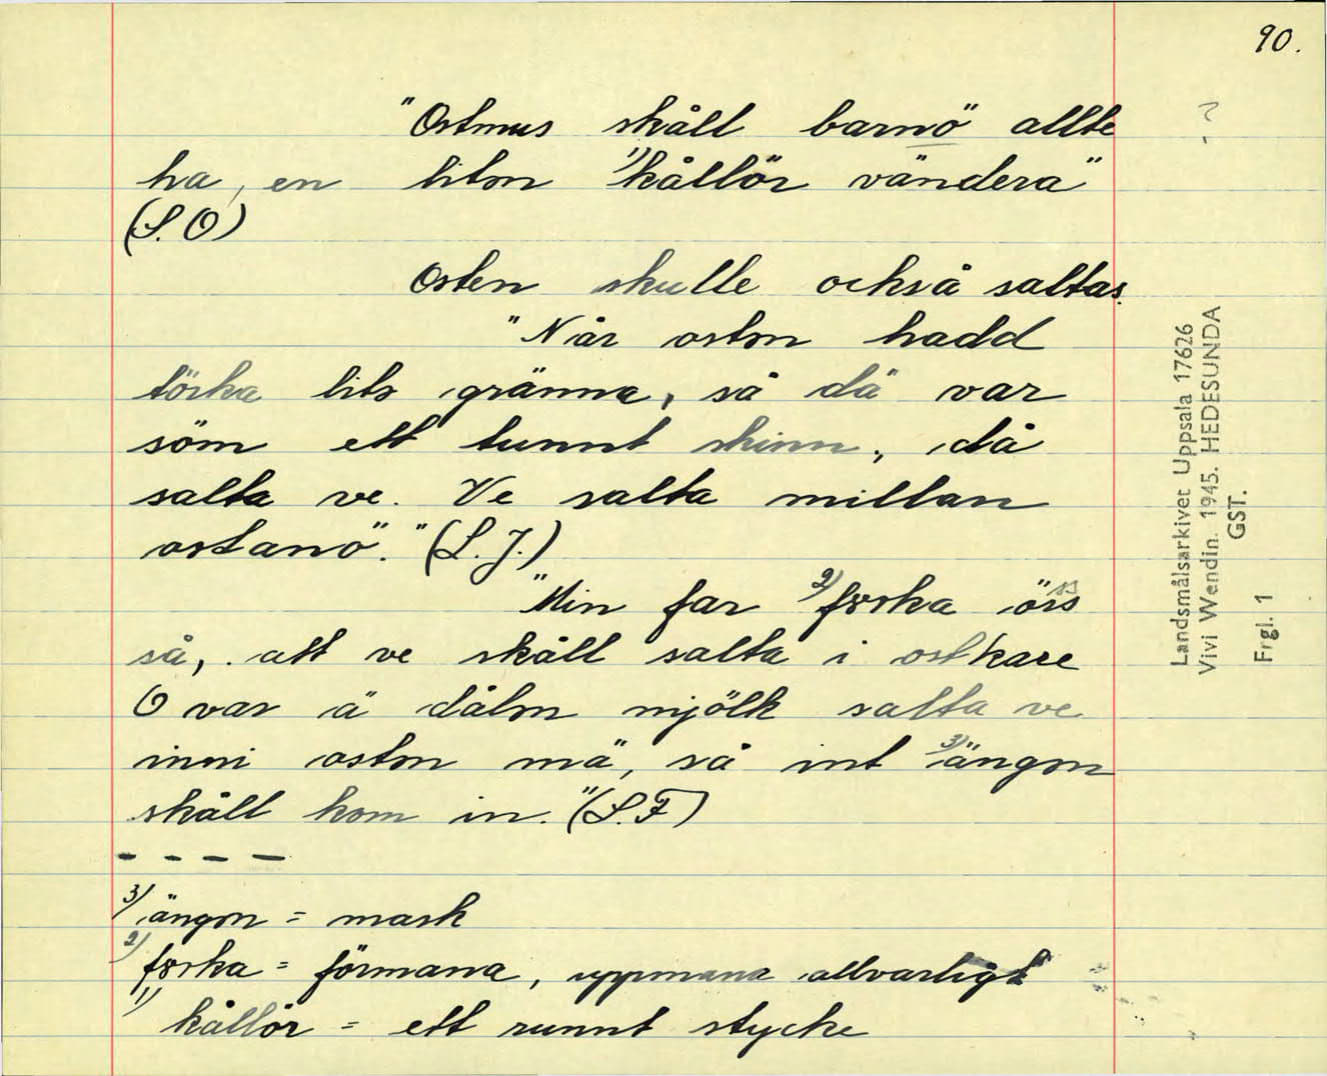 90.
"Ostmus skåll barnö allte
ha, en liten ¹⁾kållör vändera"
(S.O)
Osten skulle också saltas.
"Når ostn hadd
törka lite gränna, så dä var
söm ett tunnt skinn, då
salta ve. Ve salta millan
ostanö"." (L.J.)
"Min far ²⁾förka öss
så, att ve skåll salta i ostkare
O var ä dåln mjölk salta ve
inni ostn mä, så int ³⁾ängon
skåll kom in." (S.F)
- - - -
³⁾ängon = mask
²⁾förka = förmana, uppmana allvarligt
¹⁾kållör = ett runnt stycke
Landsmålsarkivet Uppsala 17626
Vivi Wendin. 1945. HEDESUNDA
GST.
Frgl. 1